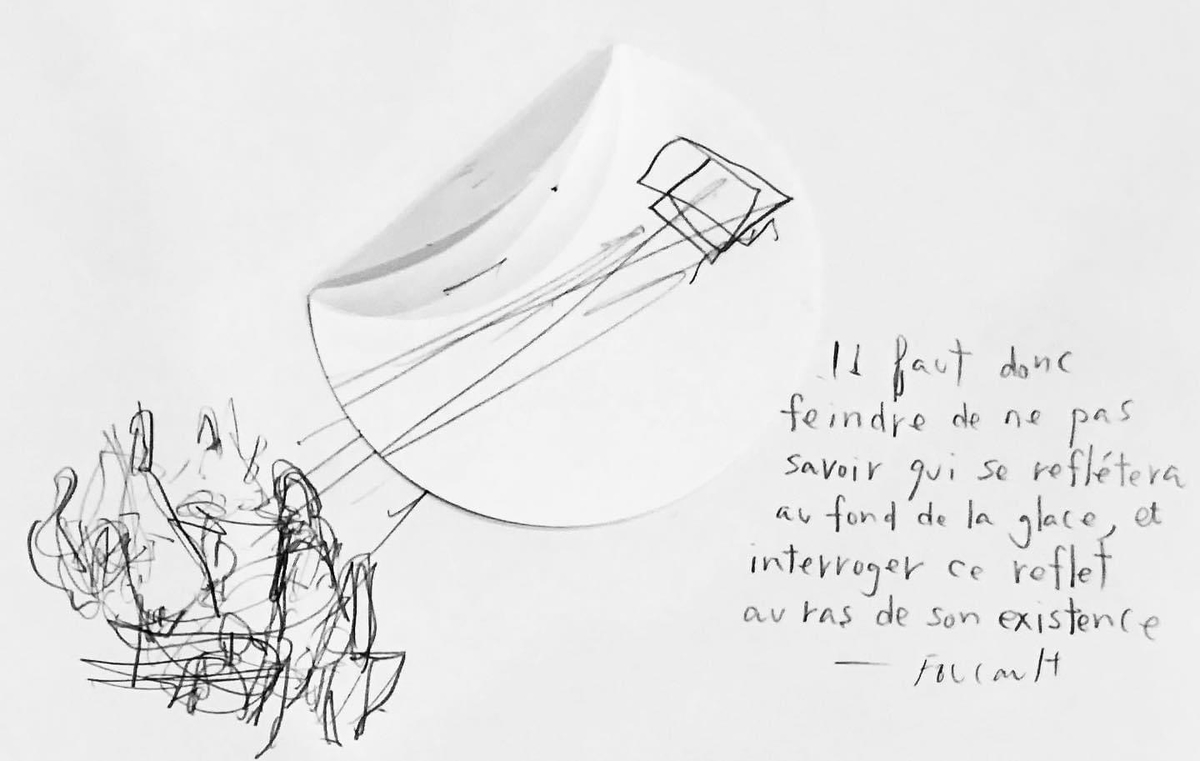 Il faut donc
feindre de ne pas
savoir qui se reflétera
au fond de la glace, et
interroger ce reflet
au ras de son existence
— Foucault